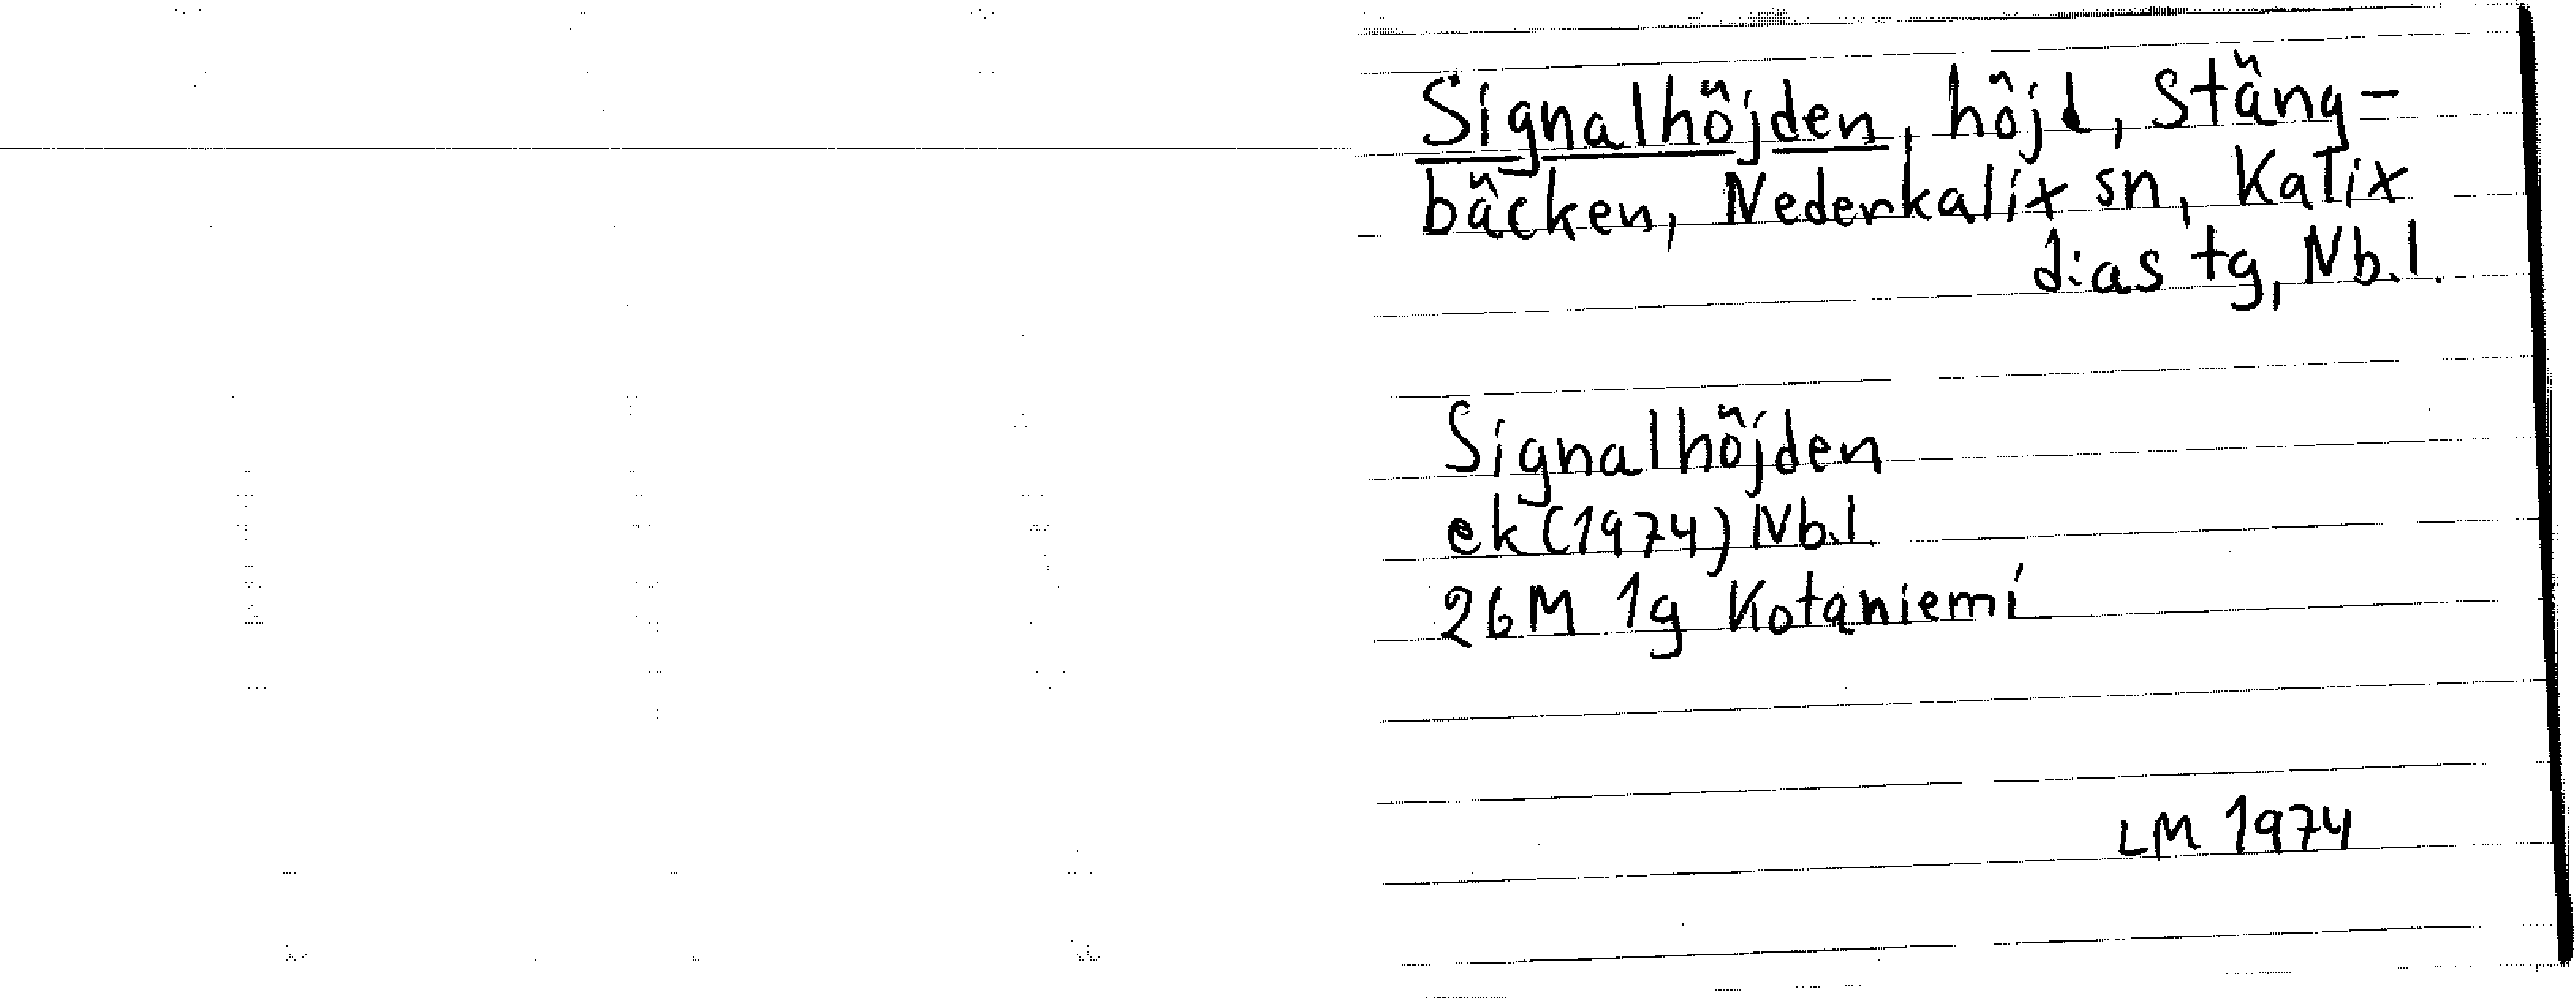 Signalhöjden, höjd, Stäng-
bäcken, Nederkalix sn, Kalix
d:as tg, Nb.l.
Signalhöjden
ek (1974) Nb.l.
26M 1g Kotaniemi
LM 1974